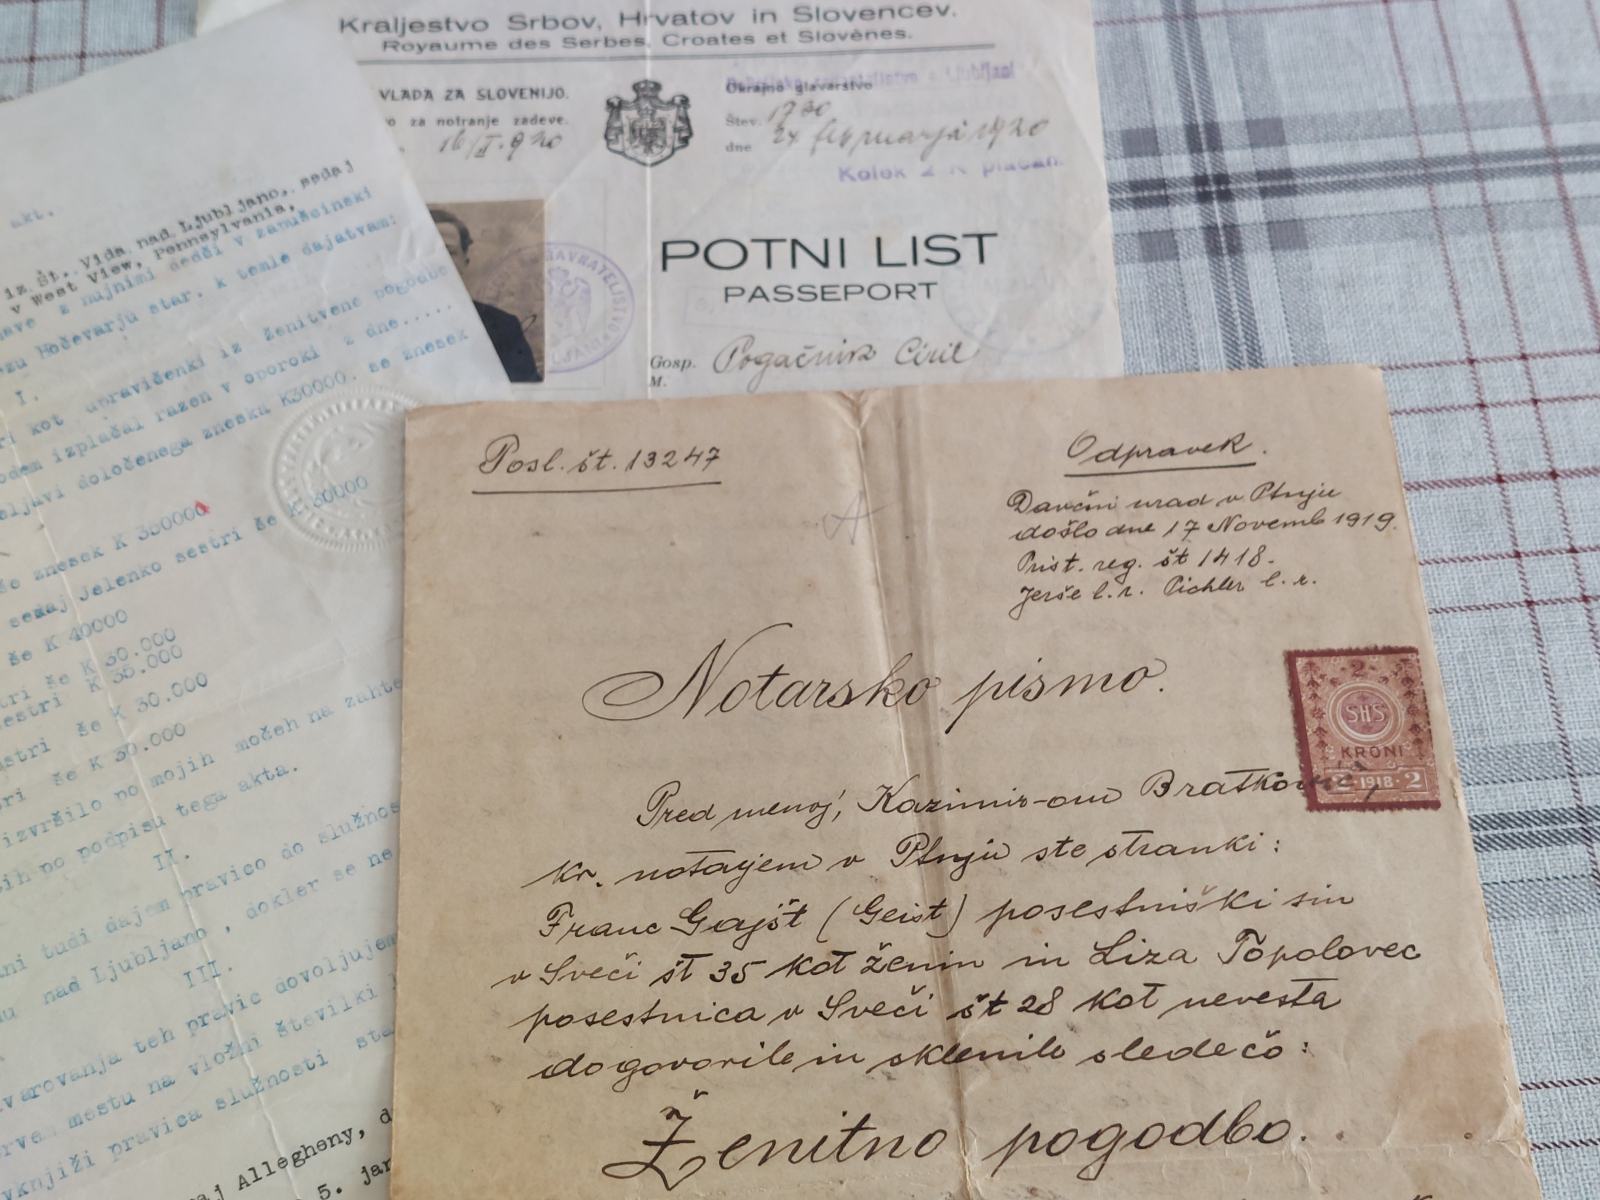 Kraljestvo Srbov, Hrvatov in Slovencev.
Royaume des Serbes, Croates et Slovènes.
VLADA ZA SLOVENIJO.
za notranje zadeve.
16/II. 920
Okrajno glavarstvo
Štev.
dne 24 februarja 1920
Kolek 2 K plačan.
POTNI LIST
PASSEPORT
Gosp. Pogačnik Ciril
M.
akt.
iz Št. Vida nad Ljubljano, sedaj
v West View, Pennsylvania,
z najnimi dediči v zapuščinski
Kočevarju star. k temle dajatvam:
I.
kot upravičenki iz ženitvene pogodbe
izplačal razen v oporoki z dne.....
določenega zneska K30000. se znesek
znesek K 350000
sedaj jelenko sestri še K 30000
še K 40000
še K 30.000
K 35.000
še K 30.000
še K 30.000
izvršilo po mojih močeh na
po podpisu tega akta.
II.
tudi dajem pravico do
nad Ljubljano, dokler se ne
III.
teh pravic dovoljujem
mestu na vložni številki
pravica služnosti
Allegheny,
5. jan
Posl. št. 13247
Odpravek.
Davčni urad v Ptuju
došlo dne 17 Novemb 1919.
Prist. reg. št 1418.
Jerše l. r. Pichler l. r.
Notarsko pismo.
2
SHS
KRONI
2 1918 2
Pred menoj, Kazimir-om Bratkovič,
kr. notarjem v Ptuju ste stranki:
Franc Gajšt (Geist) posestniški sin
v Sveči št 35 kot ženin in Liza Topolovec
posestnica v Sveči št 28 kot nevesta
dogovorile in sklenile sledečo:
Ženitno pogodbo.